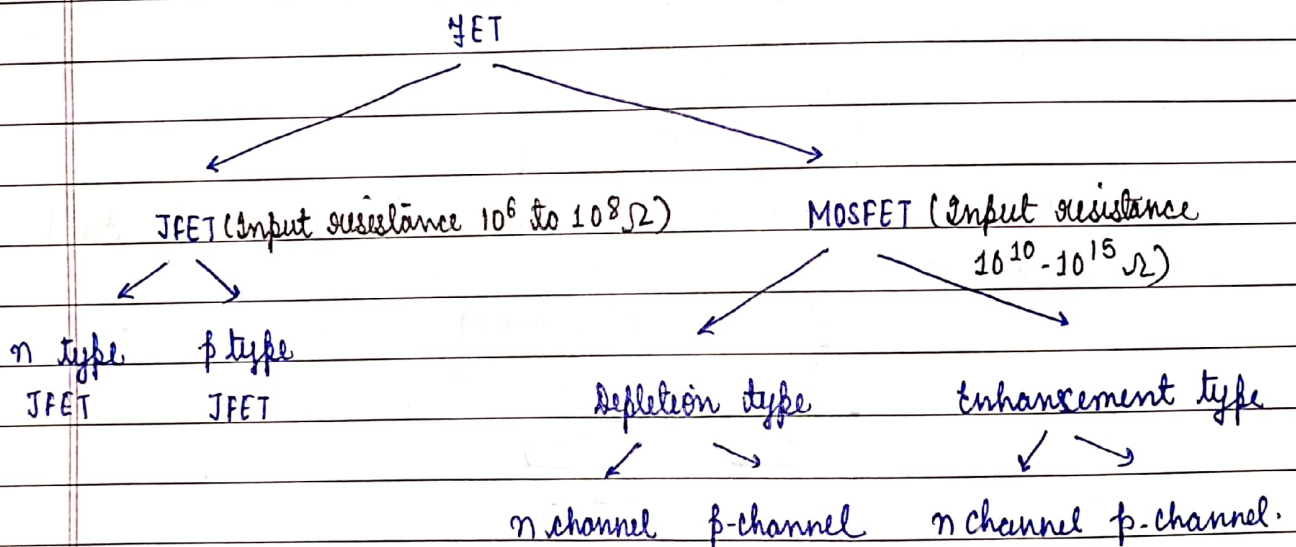 FET
JFET (Input resistance 10⁶ to 10⁸Ω)
MOSFET (Input resistance
10¹⁰-10¹⁵ Ω)
n type
JFET
p type
JFET
Depletion type
Enhancement type
n channel
p-channel
n channel
p-channel.